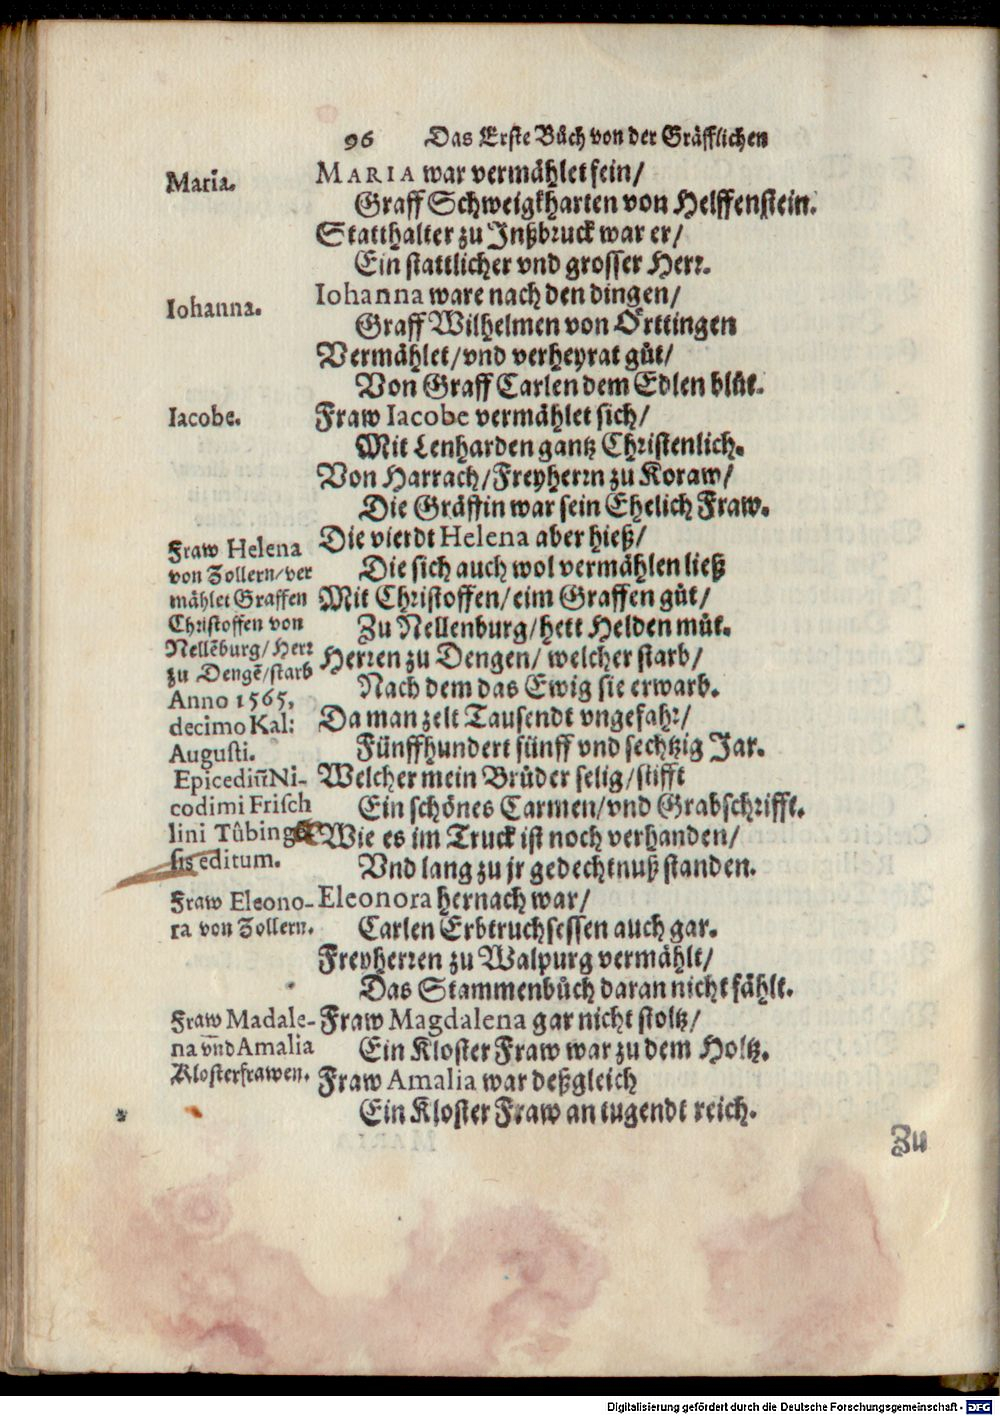 96 Das Erste Bůch von der Gräfflichen
Maria.
MARIA war vermählet fein/
Graff Schweigkharten von Helffenstein.
Statthalter zu Jnßbruck war er/
Ein stattlicher vnd grosser Herr.
Iohanna.
Iohanna ware nach den dingen/
Graff Wilhelmen von Örttingen
Vermählet/vnd verheyrat gůt/
Von Graff Carlen dem Edlen blůt.
Iacobe.
Fraw Iacobe vermählet sich/
Mit Lenharden gantz Christenlich.
Von Harrach/Freyherrn zu Koraw/
Die Gräffin war sein Ehelich Fraw.
Fraw Helena
von Zollern/ver
mählet Graffen
Christoffen von
Nellēburg/Herr
zu Dengē/starb
Anno 1565,
decimo Kal:
Augusti.
Epicediū Ni-
codimi Frisch
lini Tůbing
sis editum.
Die vierdt Helena aber hieß/
Die sich auch wol vermählen ließ
Mit Christoffen/eim Graffen gůt/
Zu Nellenburg/hett Helden můt.
Herren zu Dengen/ welcher starb/
Nach dem das Ewig sie erwarb.
Da man zelt Tausendt vngefahr/
Fünffhundert fünff vnd sechtzig Jar.
Welcher mein Brůder selig/stifft
Ein schönes Carmen/vnd Grabschrifft.
Wie es im Truck ist noch verhanden/
Vnd lang zu jr gedechtnuß standen.
Fraw Eleono-
ra von Zollern.
Eleonora hernach war/
Carlen Erbtruchsessen auch gar.
Freyherren zu Walpurg vermählt/
Das Stammenbůch daran nicht fählt.
Fraw Madale-
na vnd Amalia
Klosterfrawen.
Fraw Magdalena gar nicht stoltz/
Ein Kloster Fraw war zu dem Holtz.
Fraw Amalia war deßgleich
Ein Kloster Fraw an tugendt reich.
Zu
Digitalisierung gefördert durch die Deutsche Forschungsgemeinschaft - DFG